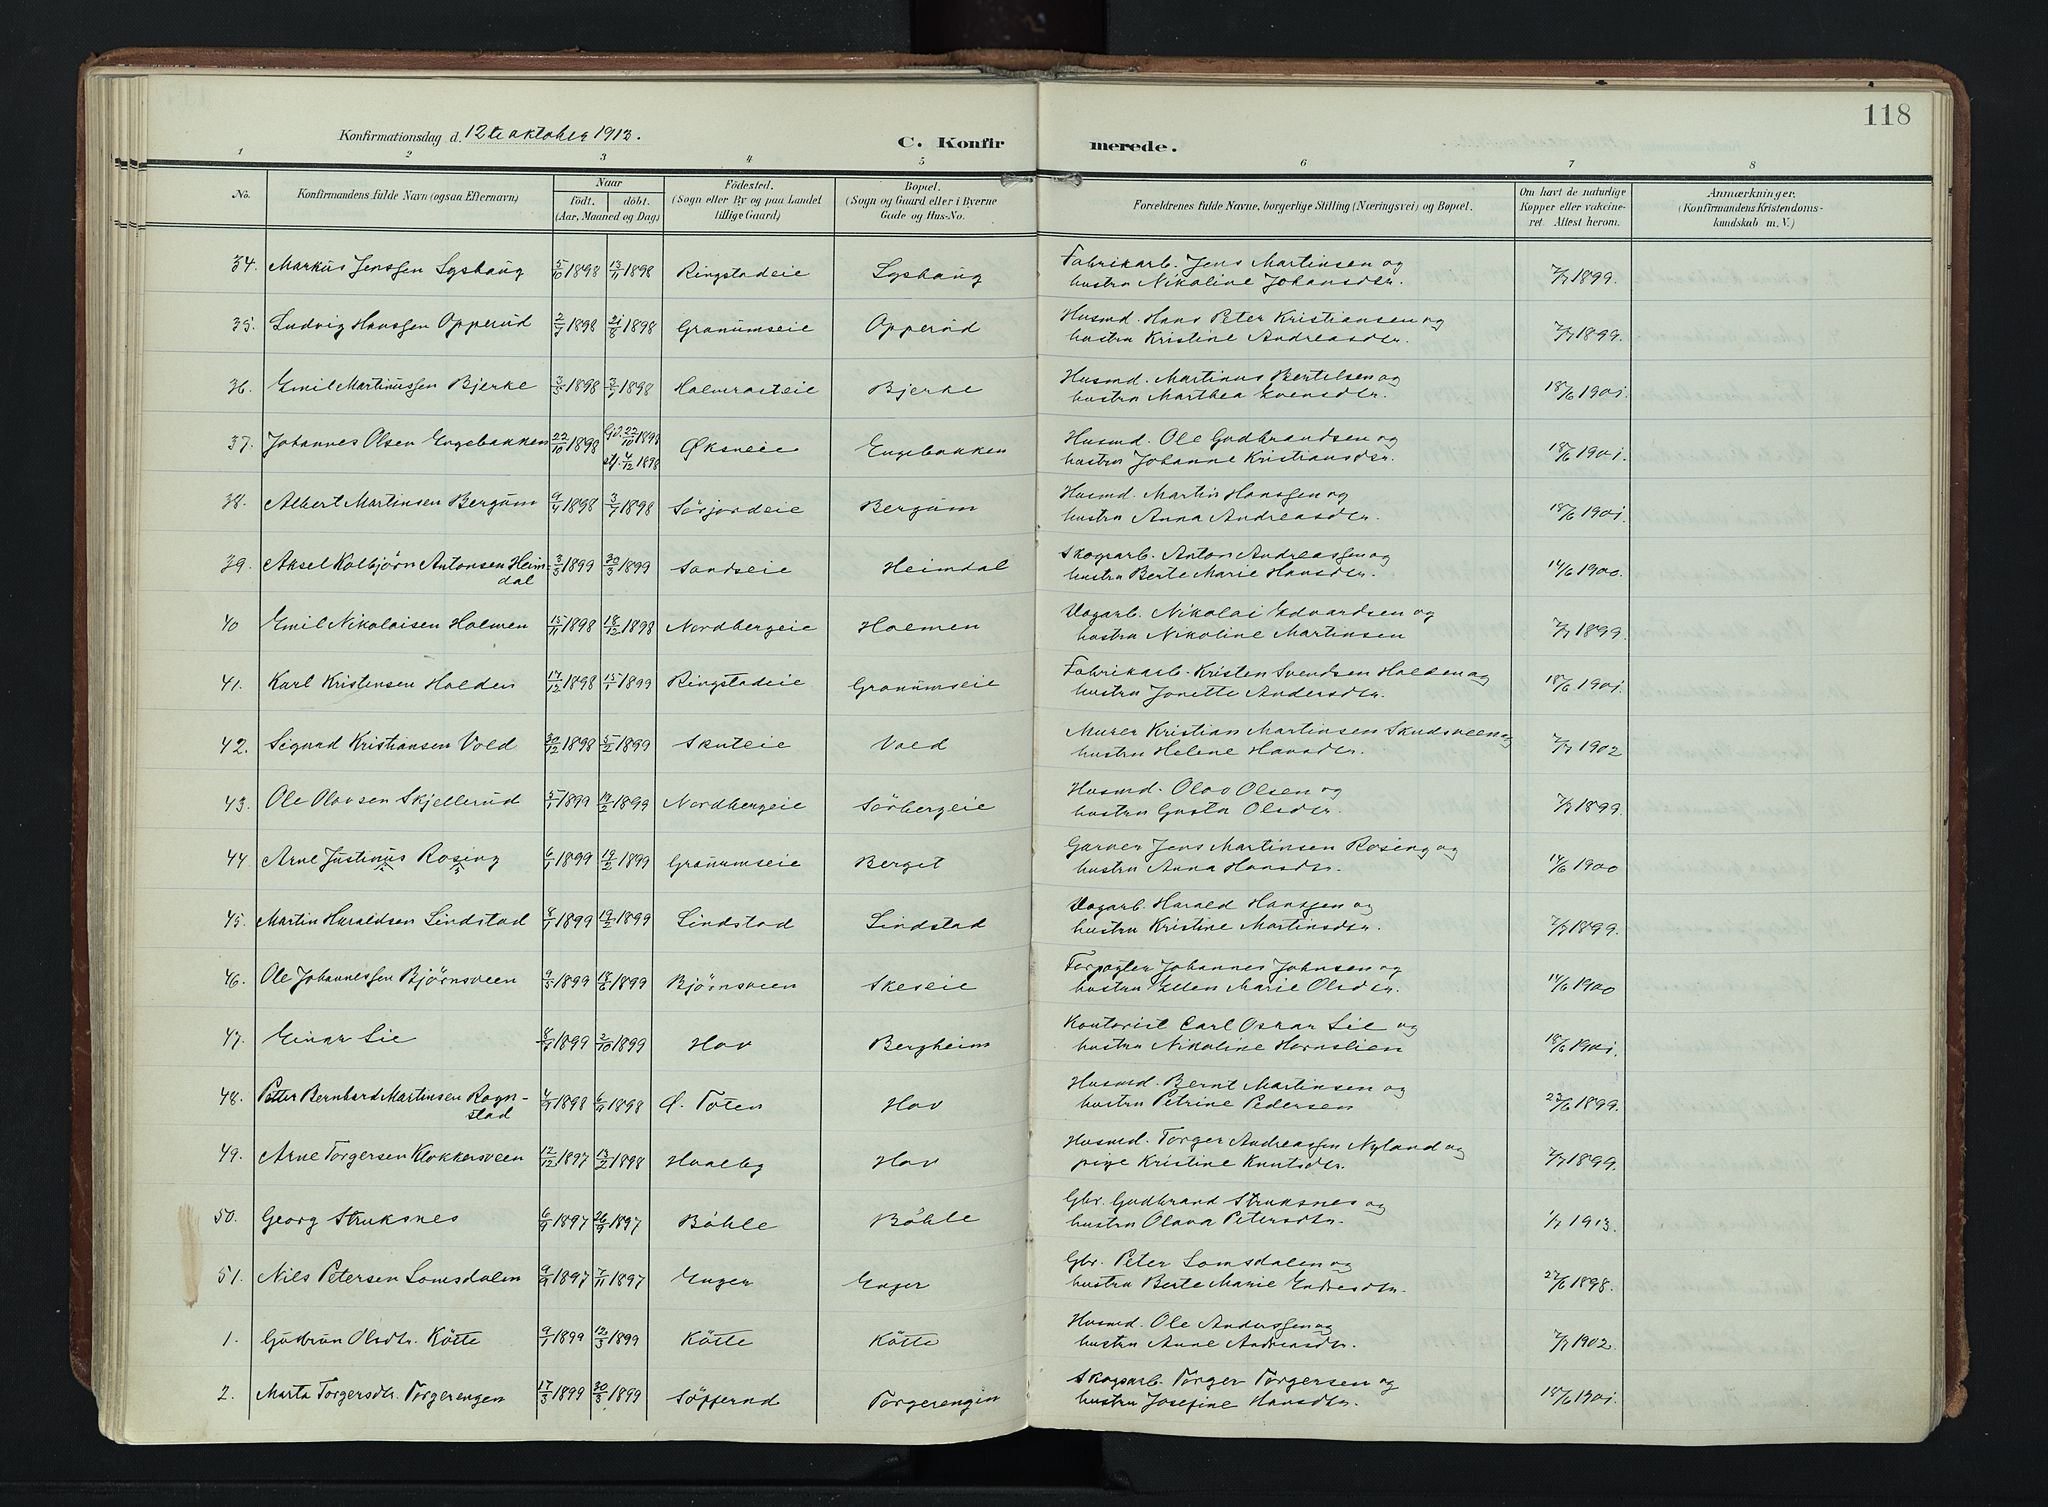 118
Konfirmationsdag d. 12te oktober 1913.
C. Konfirmerede.
1 2 3 4 5 6 7 8
No. | Konfirmandens fulde Navn (ogsaa Efternavn) | Naar født. døbt. (Aar, Maaned og Dag) | Fødested. (Sogn eller By og paa Landet tillige Gaard) | Bopæl. (Sogn og Gaard eller i Byerne Gade og Hus-No. | Forældrenes fulde Navne, borgerlige Stilling (Næringsvei) og Bopæl. | Om havt de naturlige Kopper eller vakcineret. Attest herom. | Anmærkninger. (Konfirmandens Kristendomskundskab m. V.)
34. Markus Jenssen Lyshaug 5/10 1898 13/11 1898 Ringstadeie Lyshaug Fabrikarb. Jens Martinsen og
hustru Nikoline Johansdtr. 7/7 1899.
35. Ludvig Hanssen Opperud 2/7 1898 21/8 1898 Granumseie Opperud Husmd. Hans Peter Kristiansen og
hustru Kristine Andreasdtr. 7/7 1899.
36. Emil Martinussen Bjerke 3/5 1898 3/7 1898 Bjerke Husmd. Martinus Bertelsen og
hustru Marthea Evensdtr. 18/6 1901.
37. Johannes Olsen Engebakken 22/10 1898 Gjd. 22/10 1898
stf. 4/12 1898 Øksneie Engebakken Husmd. Ole Gudbrandsen og
hustru Johanne Kristiansdtr. 18/6 1901.
38. Albert Martinsen Bergum 9/4 1898 3/7 1898 Sørjordeie Bergum Husmd. Martin Hanssen og
hustru Anna Andreasdtr. 18/6 1901.
39. Aksel Kolbjørn Antonsen Heimdal 3/3 1899 30/3 1899 Sandseie Heimdal Skogsarb. Anton Andreassen og
hustru Berte Marie Hansdtr. 14/6 1900.
40 Emil Nikolaisen Holmen 15/11 1898 18/12 1898 Nordbergeie Holmen Dagarb. Nikolai Edvardsen og
hustru Nikoline Martinsen 7/7 1899.
41. Karl Kristensen Holden 17/12 1898 15/1 1899 Ringstadeie Granumseie Fabrikarb. Kristen Svendsen Holden og
hustru Jonette Andersdtr. 18/6 1901.
42. Sigurd Kristiansen Vold 30/12 1898 5/2 1899 Skuteie Vold Murer Kristian Martinsen Skudsveen og
hustru Helene Hansdtr. 7/7 1902
43. Ole Olovsen Skjellerud 5/1 1899 19/2 1899 Nordbergeie Sørbergeie Husmd. Olov Olsen og
hustru Gusta Olsdtr. 7/7 1899.
44. Arne Justinus Rosing 6/1 1899 19/2 1899 Granumseie Berget Garver Jens Martinsen Rosing og
hustru Anna Hansdtr. 14/6 1900
45. Martin Haraldsen Lindstad 8/1 1899 19/2 1899 Lindstad Lindstad Dagarb. Harald Hanssen og
hustru Kristine Martinsdtr. 7/7 1899.
46. Ole Johannessen Bjørnsveen 9/5 1899 18/6 1899 Bjørnsveen Skeseie Forpagter Johannes Johnsen og
hustru Ellen Marie Olsdtr. 14/6 1900
47. Einar Lie 1899 2/10 1899 Hov Bergheim Kontorist Carl Oskar Lie og
hustru Nikoline Hornslien 18/6 1901.
48. Petter Bernhard Martinsen Rognstad 4/9 1898 6/11 1898 Ø. Toten Hov Husmd. Bernt Martinsen og
hustru Petrine Pedersen 22/6 1899.
49. Arne Torgersen Klokkersveen 12/12 1897 13/2 1898 Hvalby Hov Husmd. Torger Andreassen Nyland og
pige Kristine Knutsdtr. 7/7 1899.
50. Georg Struksnes 6/9 1897 26/9 1897 Bøhle Bøhle Gbr. Gudbrand Struksnes og
hustru Olava Petersdtr. 1/7 1913.
51. Nils Petersen Lomsdalen 9/9 1897 7/11 1897 Enger Enger Gbr. Peter Lomsdalen og
hustru Berte Marie Endresdtr. 22/6 1898.
1. Gudrun Olsdtr. Køtte 9/1 1899 12/3 1899 Køtte Køtte Husmd. Ole Anderssen og
hustru Anne Andreasdtr. 7/7 1902
2. Marta Torgersdtr. Torgerengen 17/3 1899 30/3 1899 Søpperud Torgerengen Skogsarb. Torger Torgersen og
hustru Josefine Hansdtr. 18/6 1901.